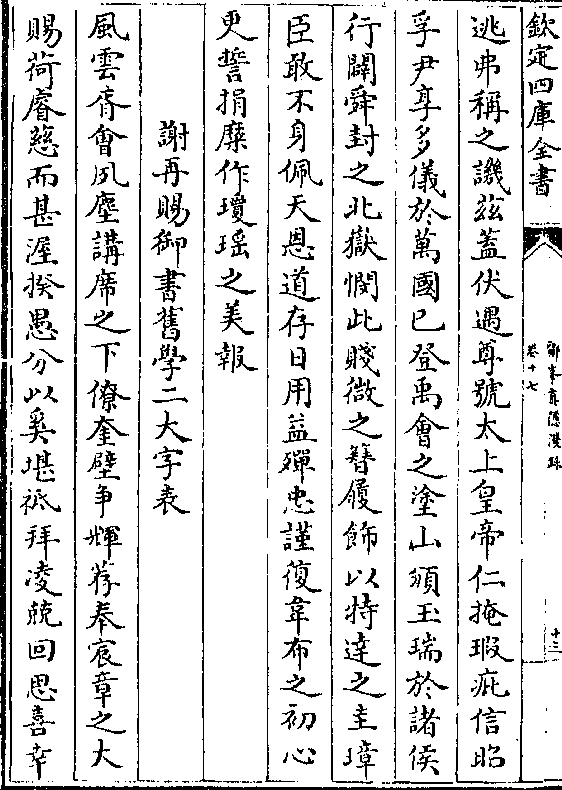 欽定四庫全書
鄮峯真隱漫録
卷十七
十三
逃弗稱之譏兹蓋伏遇尊號太上皇帝仁掩瑕疵信昭
孚尹享多儀於萬國已登禹會之塗山頒玉瑞於諸侯
行闢舜封之北嶽憫此賤微之簪履飾以特達之圭璋
臣敢不身佩天恩道存日用益殫忠謹復韋布之初心
更誓捐糜作瓊瑶之美報
謝再賜御書舊學二大字表
風雲胥會夙塵講席之下僚奎璧争輝荐奉宸章之大
賜荷睿慈而甚渥揆愚分以奚堪祗拜凌兢回思喜幸